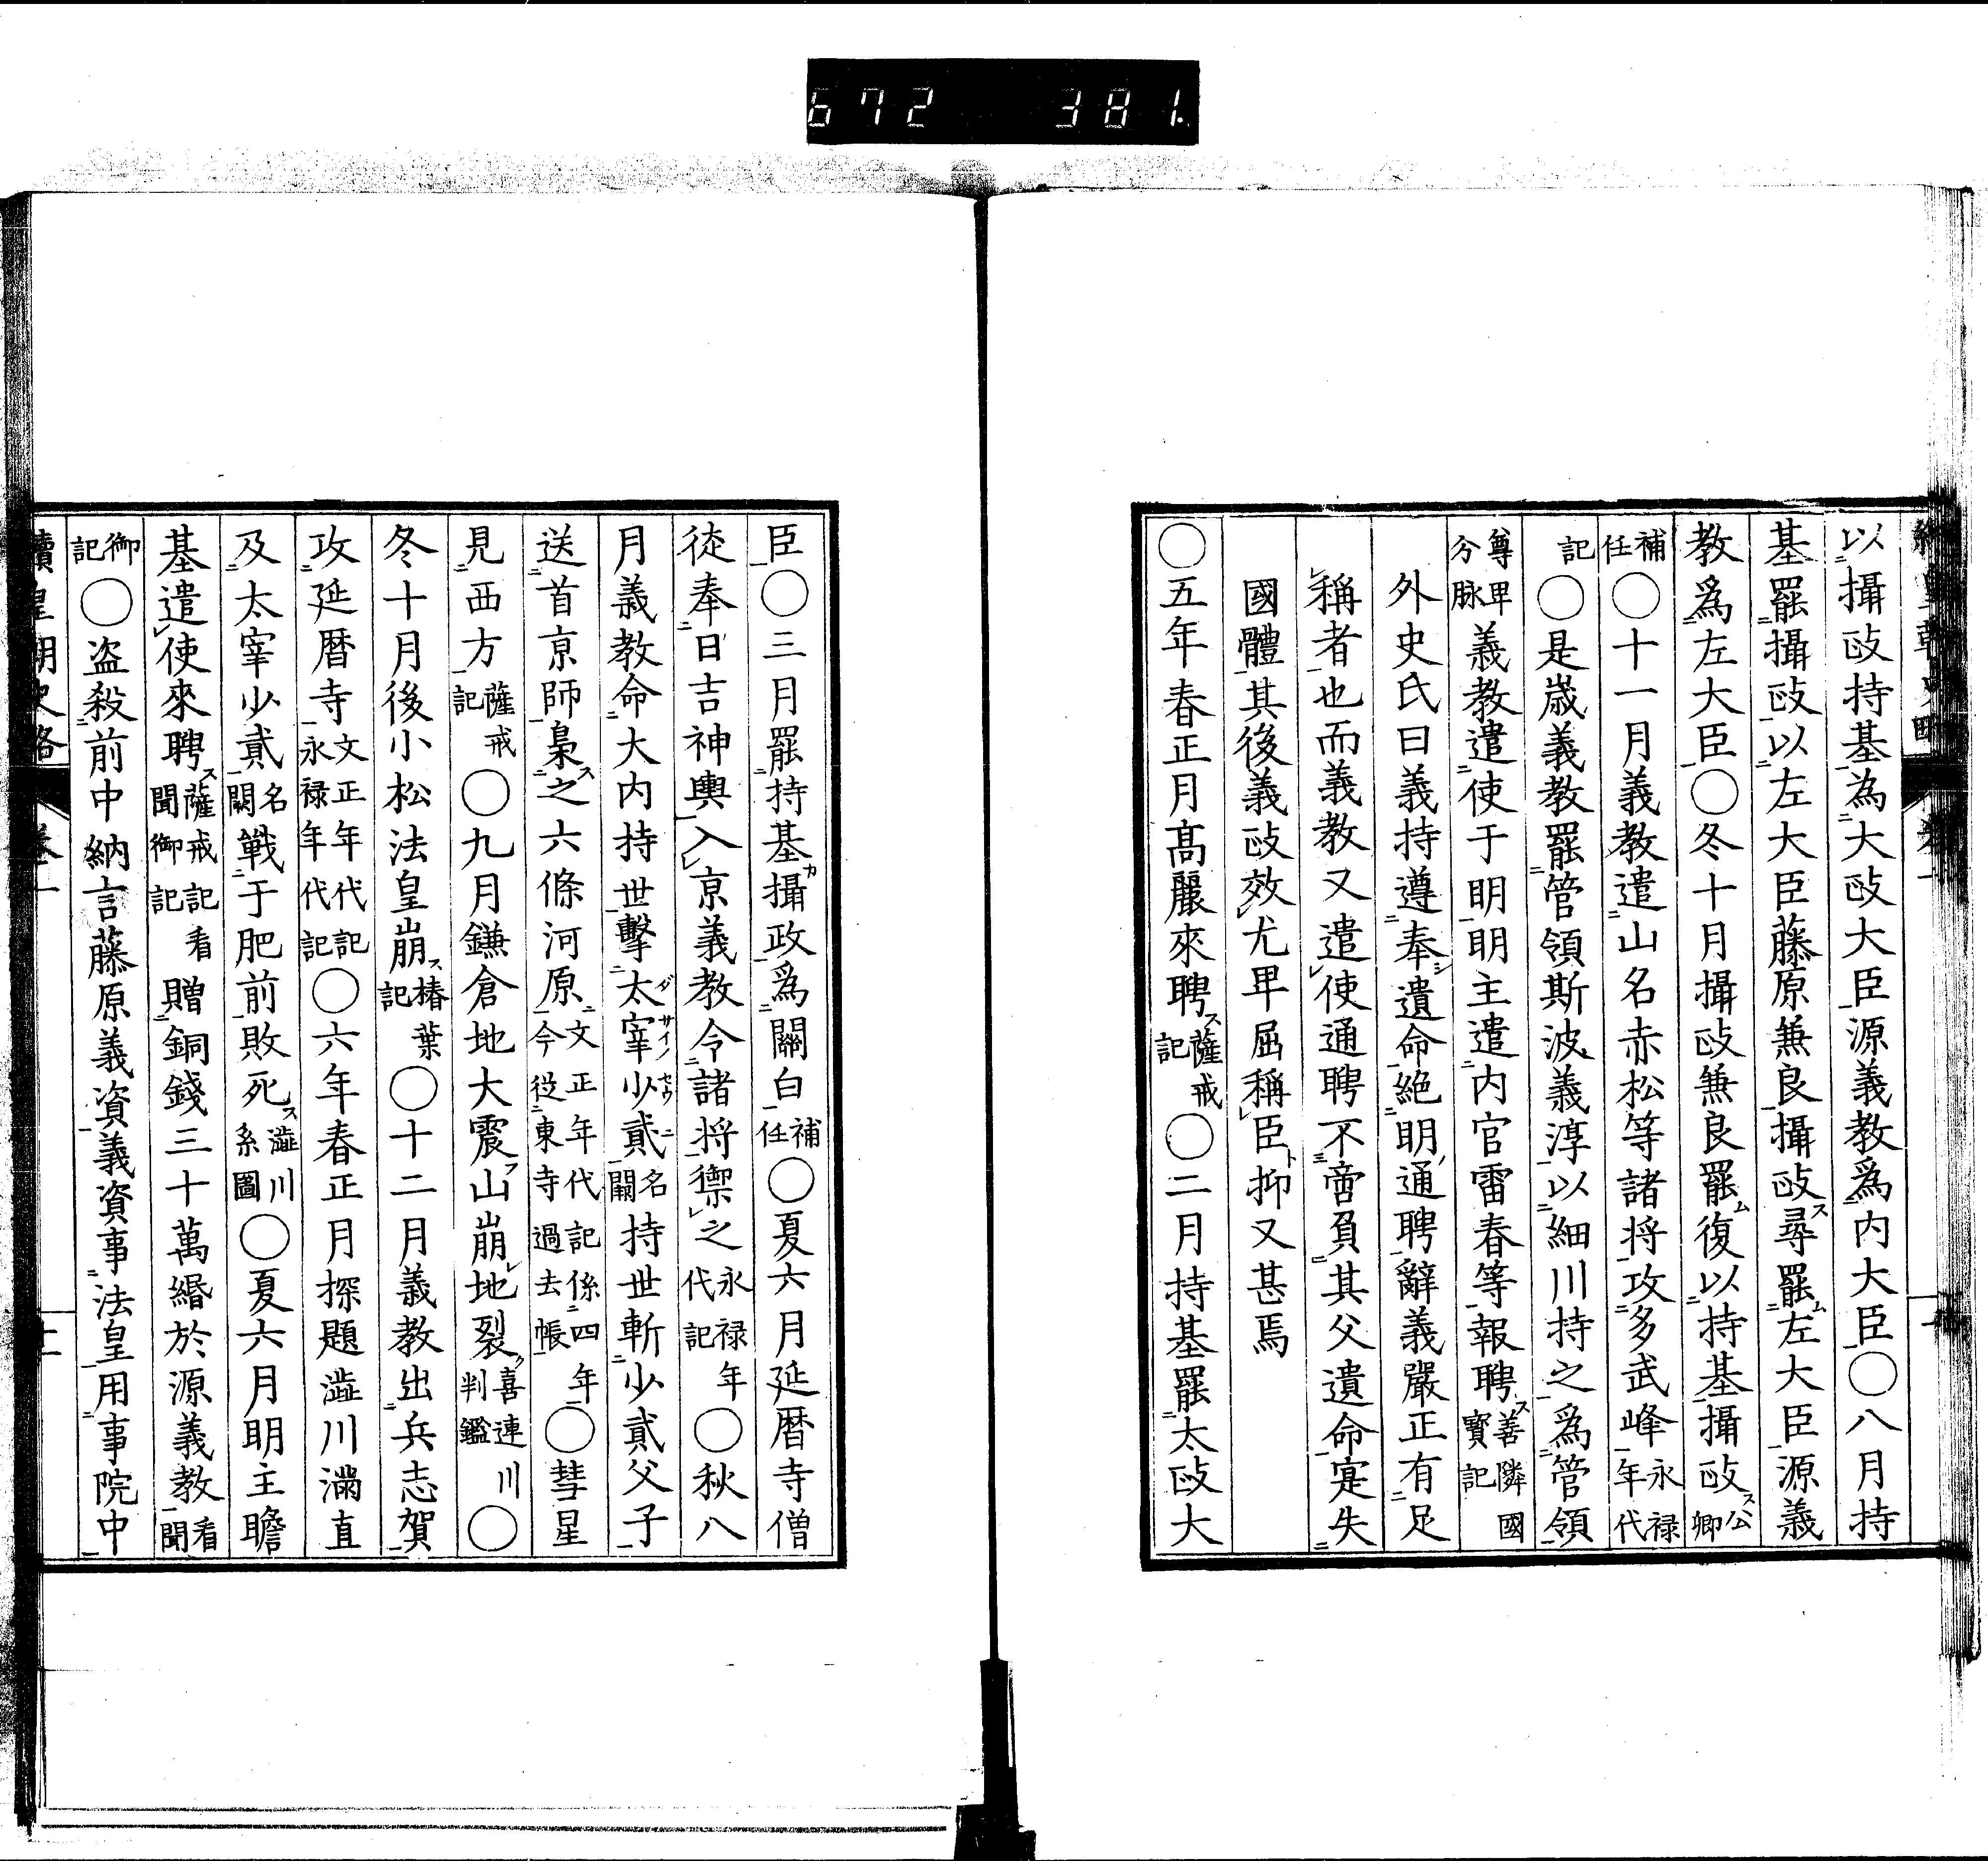 672 381.
以攝政持基為大政大臣源義教爲内大臣○八月持
基罷攝政以左大臣藤原兼良攝政尋罷左大臣源義
教爲左大臣○冬十月攝政兼良罷復以持基攝政公卿
補任○十一月義教遣山名赤松等諸将攻多武峰永禄年代
記○是歳義教罷管領斯波義淳以細川持之爲管領
尊卑分脉義教遣使于明明主遣内官雷春等報聘善隣國寳記
外史氏曰義持遵奉遺命絶明通聘辭義嚴正有足
稱者也而義教又遣使通聘不啻負其父遺命寔失
國體其後義政效尤卑屈稱臣抑又甚焉
○五年春正月髙麗來聘薩戒記○二月持基罷太政大
臣○三月罷持基攝政爲關白補任○夏六月延暦寺僧
徒奉日吉神輿入京義教令諸将禦之永禄年代記○秋八
月義教命大内持世擊太宰少貳名闕持世斬少貳父子
送首京師梟之六條河原文正年代記係四年今從東寺過去帳○彗星
見西方薩戒記○九月鎌倉地大震山崩地裂喜連川判鑑○
冬十月後小松法皇崩椿葉記○十二月義教出兵志賀
攻延暦寺文正年代記永禄年代記○六年春正月探題澁川滿直
及太宰少貳名闕戰于肥前敗死澁川系圖○夏六月明主瞻
基遣使來聘薩戒記看聞御記贈銅錢三十萬緡於源義教看聞
御記○盗殺前中納言藤原義資義資事法皇用事院中
續皇朝史略 卷一